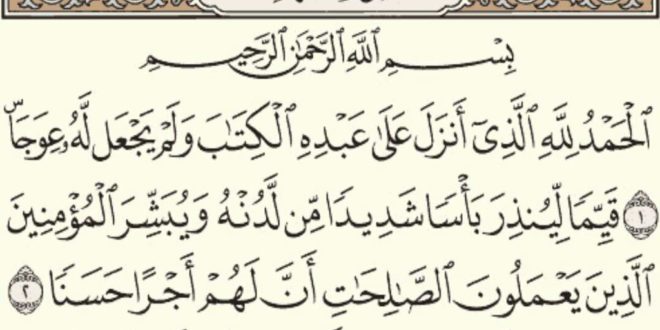 بِسْمِ ٱللَّهِ ٱلرَّحْمَٰنِ ٱلرَّحِيمِ
ٱلْحَمْدُ لِلَّهِ ٱلَّذِىٓ أَنزَلَ عَلَىٰ عَبْدِهِ ٱلْكِتَٰبَ وَلَمْ يَجْعَل لَّهُۥ عِوَجَاۜ
١ قَيِّمًا لِّيُنذِرَ بَأْسًا شَدِيدًا مِّن لَّدُنْهُ وَيُبَشِّرَ ٱلْمُؤْمِنِينَ
ٱلَّذِينَ يَعْمَلُونَ ٱلصَّٰلِحَٰتِ أَنَّ لَهُمْ أَجْرًا حَسَنًا ٢